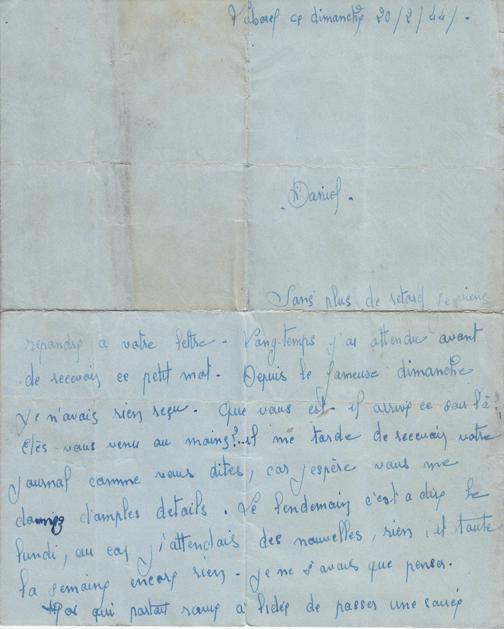 Taborel ce dimanche 20/2/44/.
.Daniel.
Sans plus de retard je viens
repondre a votre lettre. Long-temps j'ai attendu avant
de recevoir ce petit mot. Depuis le fameuse dimanche
je n'avais rien reçu. Que vous est-il arrivé ce soir là?
Etes-vous venu au moins?..il me tarde de recevoir votre
journal comme vous dites, car j'espère vous me
d'amples details. Le lendemain c'est a dire le
lundi, au car j'attendais des nouvelles, rien, et toute
la semaine encore rien. Je ne savais que penser.
Moi qui partait a l'idée de passer une soirée